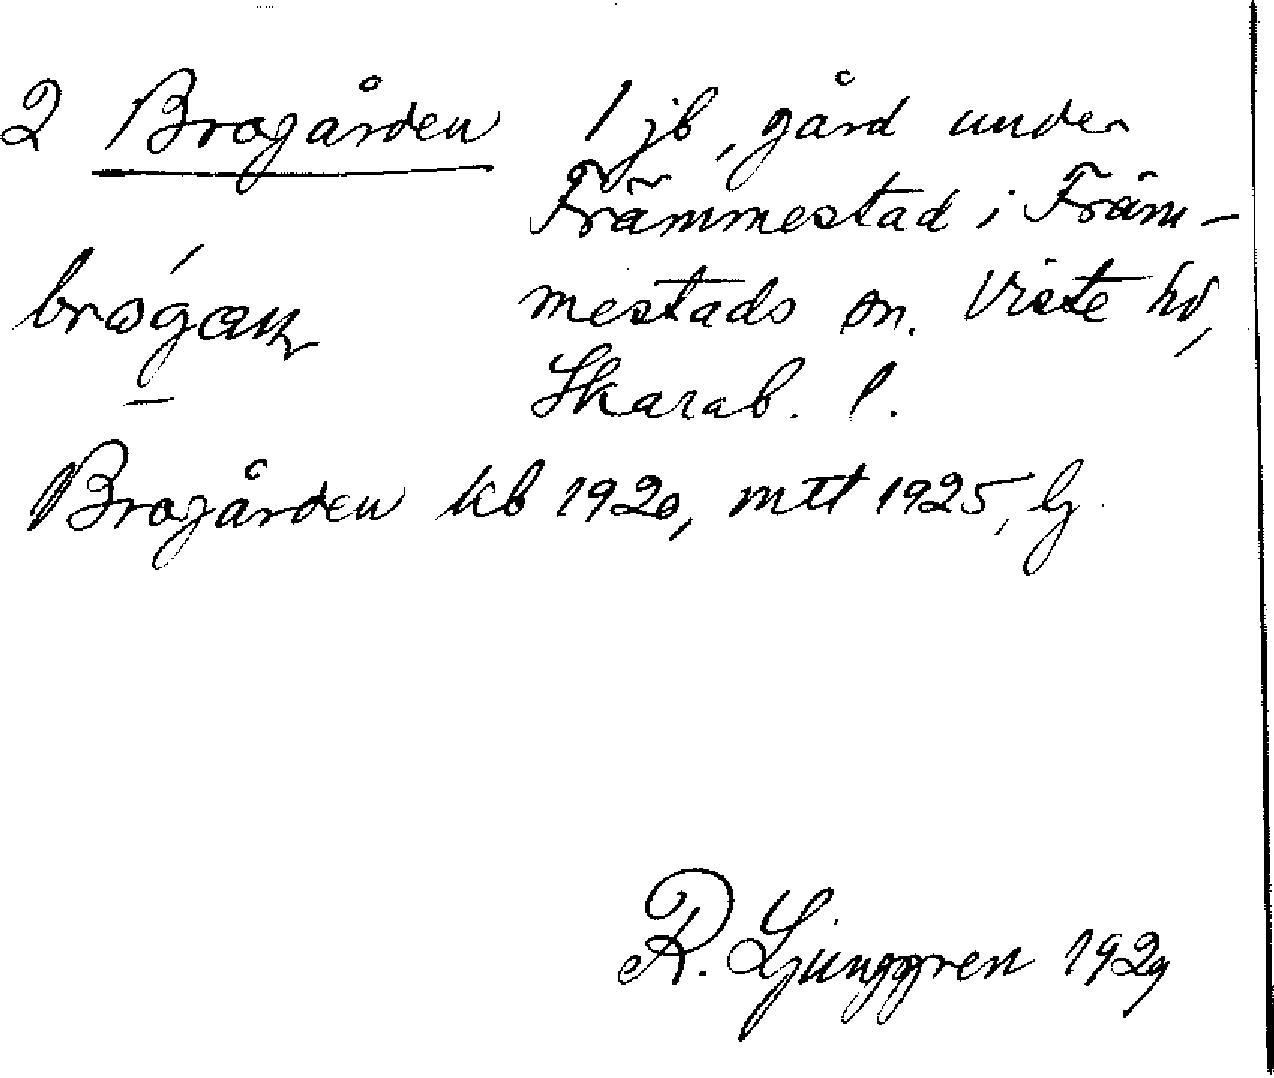 2 Brogården 1 jb, gård under
Främmestad i Främ-
mestads sn. Viste hd,
Skarab. l.
Brogården kb 1920, mtl 1925, Lj
R. Ljunggren 1929